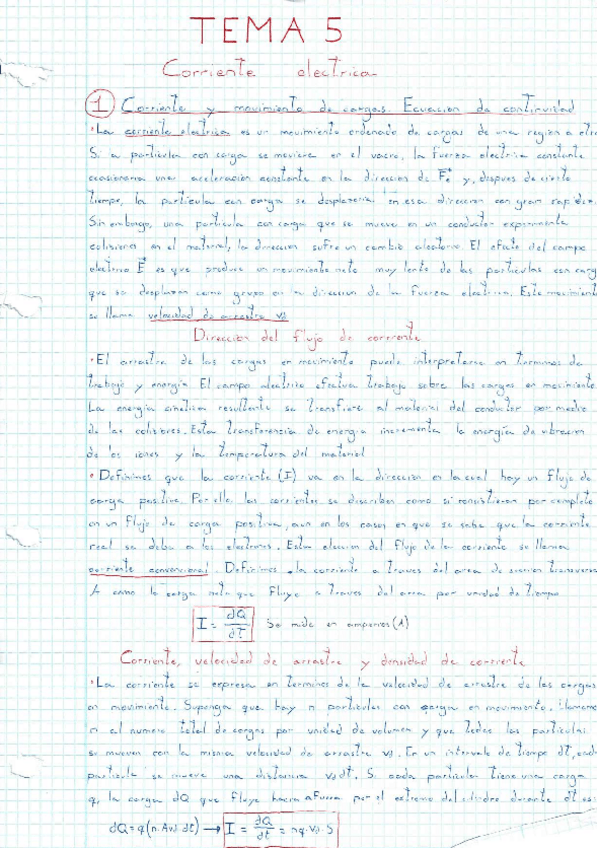 TEMA 5
Corriente electrica
1 Corriente y movimiento de cargas. Ecuacion de continuidad
• La corriente electrica es un movimiento ordenado de cargas de una region a otra
Si a particula con carga se moviera en el vacio, la fuerza electrica constante
ocasionaria una aceleracion constante en la direccion de Fe y, despues de cierto
tiempo, la particula con carga se desplazaria en esa direccion con gran rapidez.
Sin embargo, una particula con carga que se mueve en un conductor experimenta
colisiones en el material, la direccion sufre un cambio aleatorio. El efecto del campo
electrico E es que produce un movimiento neto muy lento de las particulas con carg
que se desplazan como grupo en la direccion de la fuerza electrica. Este movimient
se llama velocidad de arrastre vd
Direccion del flujo de corriente
• El arrastre de las cargas en movimiento puede interpretarse en terminos de
trabajo y energia El campo electrico efectua trabajo sobre las cargas en movimiento
La energia cinetica resultante se transfiere al material del conductor por medio
de las colisiones. Esta transferencia de energia incrementa la energia de vibracion
de los iones y la temperatura del material
• Definimos que la corriente (I) va en la direccion en la cual hay un flujo de
carga positiva. Por ello, las corrientes se describen como si consistieran por completo
en un flujo de carga positiva, aun en los casos en que se sabe que la corriente
real se debe a los electrones. Esta eleccion del flujo de la corriente se llama
corriente convencional. Definimos la corriente a traves del area de seccion transversa
A como la carga neta que fluye a traves del area por unidad de tiempo
I = dQ/dt Se mide en amperios (A)
Corriente, velocidad de arrastre y densidad de corriente
• La corriente se expresa en terminos de la velocidad de arrastre de las cargas
en movimiento. Suponga que hay n particulas con carga en movimiento. Llamamo
n al numero total de cargas por unidad de volumen y que todas las particulas
se mueven con la misma velocidad de arrastre vd. En un intervalo de tiempo dt, cad
particula se mueve una distancia vd dt. Si cada particula tiene una carga
q, la carga dQ que fluye hacia afuera por el extremo del cilindro durante dt es:
dQ = q(n·Avd·dt) → I = dQ/dt = nq·vd·S